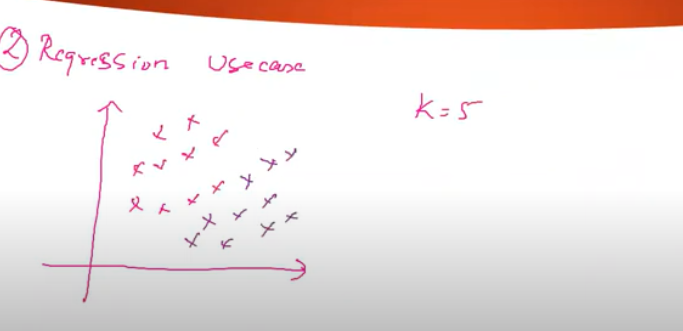 ② Regression Usecase
K=5